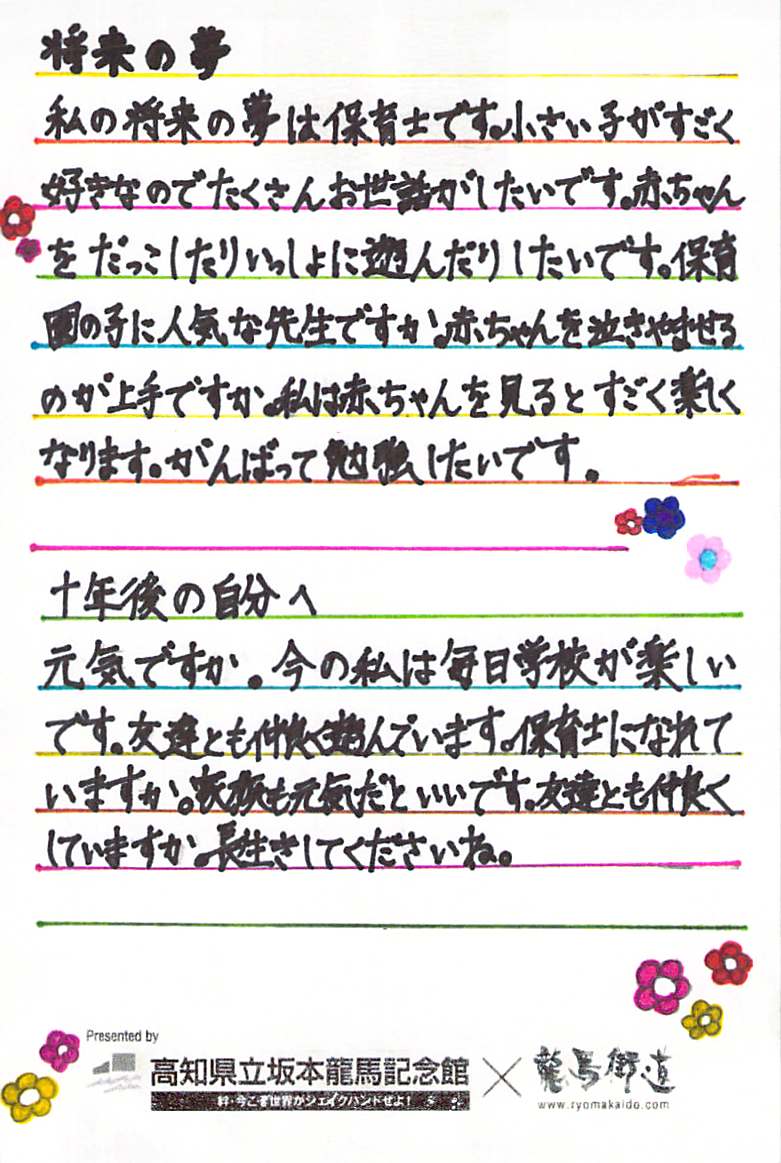 将来の夢
私の将来の夢は保育士です。小さい子がすごく
好きなのでたくさんお世話がしたいです。赤ちゃん
をだっこしたりいっしょに遊んだりしたいです。保育
園の子に人気な先生ですか。赤ちゃんを泣きやませる
のが上手ですか。私は赤ちゃんを見るとすごく楽しく
なります。がんばって勉強したいです。
十年後の自分へ
元気ですか。今の私は毎日学校が楽しい
です。友達とも仲良く遊んでいます。保育士になれて
いますか。家族も元気だといいです。友達とも仲良く
していますか。長生きしてくださいね。
Presented by
高知県立坂本龍馬記念館×龍馬街道
絆・今こそ世界がシェイクハンドせよ!
www.ryomakaido.com